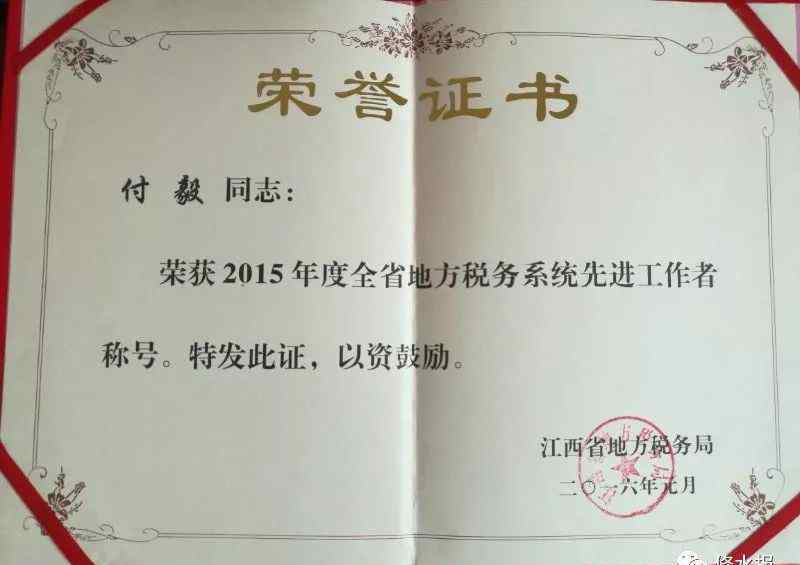 荣誉证书
付 毅 同志：
荣获2015年度全省地方税务系统先进工作者
称号。特发此证，以资鼓励。
江西省地方税务局
二〇一六年元月
修水报